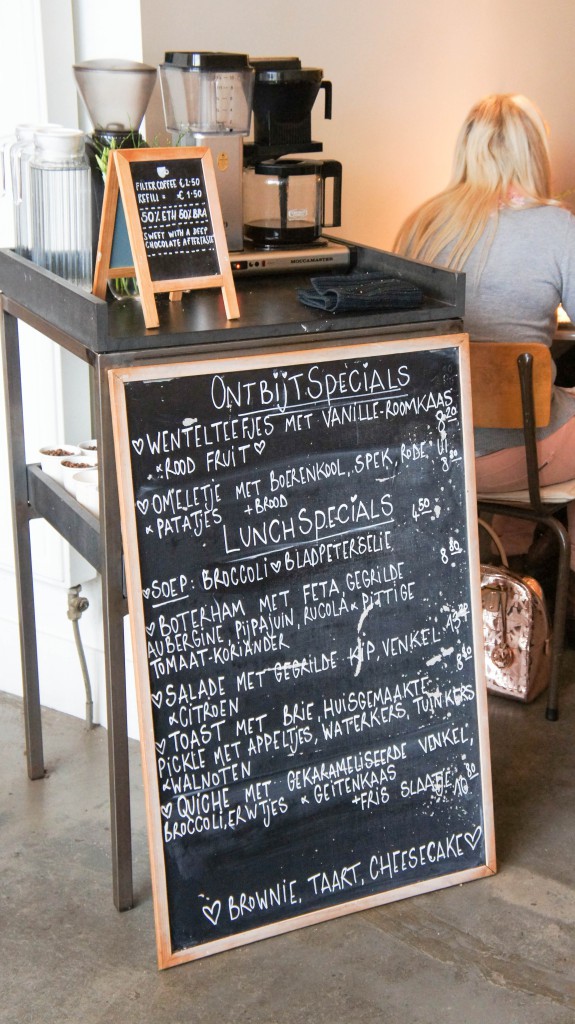 FILTERCOFFEE € 2.50
REFILL = € 1.50
50% ETH 50% BRA
SWEET WITH A DEEP
CHOCOLATE AFTERTASTE
MOCCAMASTER
ONTBIJTSPECIALS
♡ WENTELTEEFJES MET VANILLE-ROOMKAAS
& ROOD FRUIT ♡
♡ OMELETJE MET BOERENKOOL, SPEK, RODE UI 8.80
& PATATJES + BROOD
LUNCHSPECIALS
4.50
♡ SOEP: BROCCOLI ♡ BLADPETERSELIE
8.80
♡ BOTERHAM MET FETA, GEGRILDE
AUBERGINE, PIJPAJUIN, RUCOLA & PITTIGE
TOMAAT-KORIANDER
♡ SALADE MET GEGRILDE KIP, VENKEL
& CITROEN
8.80
♡ TOAST MET BRIE, HUISGEMAAKTE
PICKLE MET APPELTJES, WATERKERS, TUINKERS
& WALNOTEN
♡ QUICHE MET GEKARAMELISEERDE VENKEL,
BROCCOLI, ERWTJES & GEITENKAAS
+ FRIS SLAATJE
♡ BROWNIE, TAART, CHEESECAKE ♡